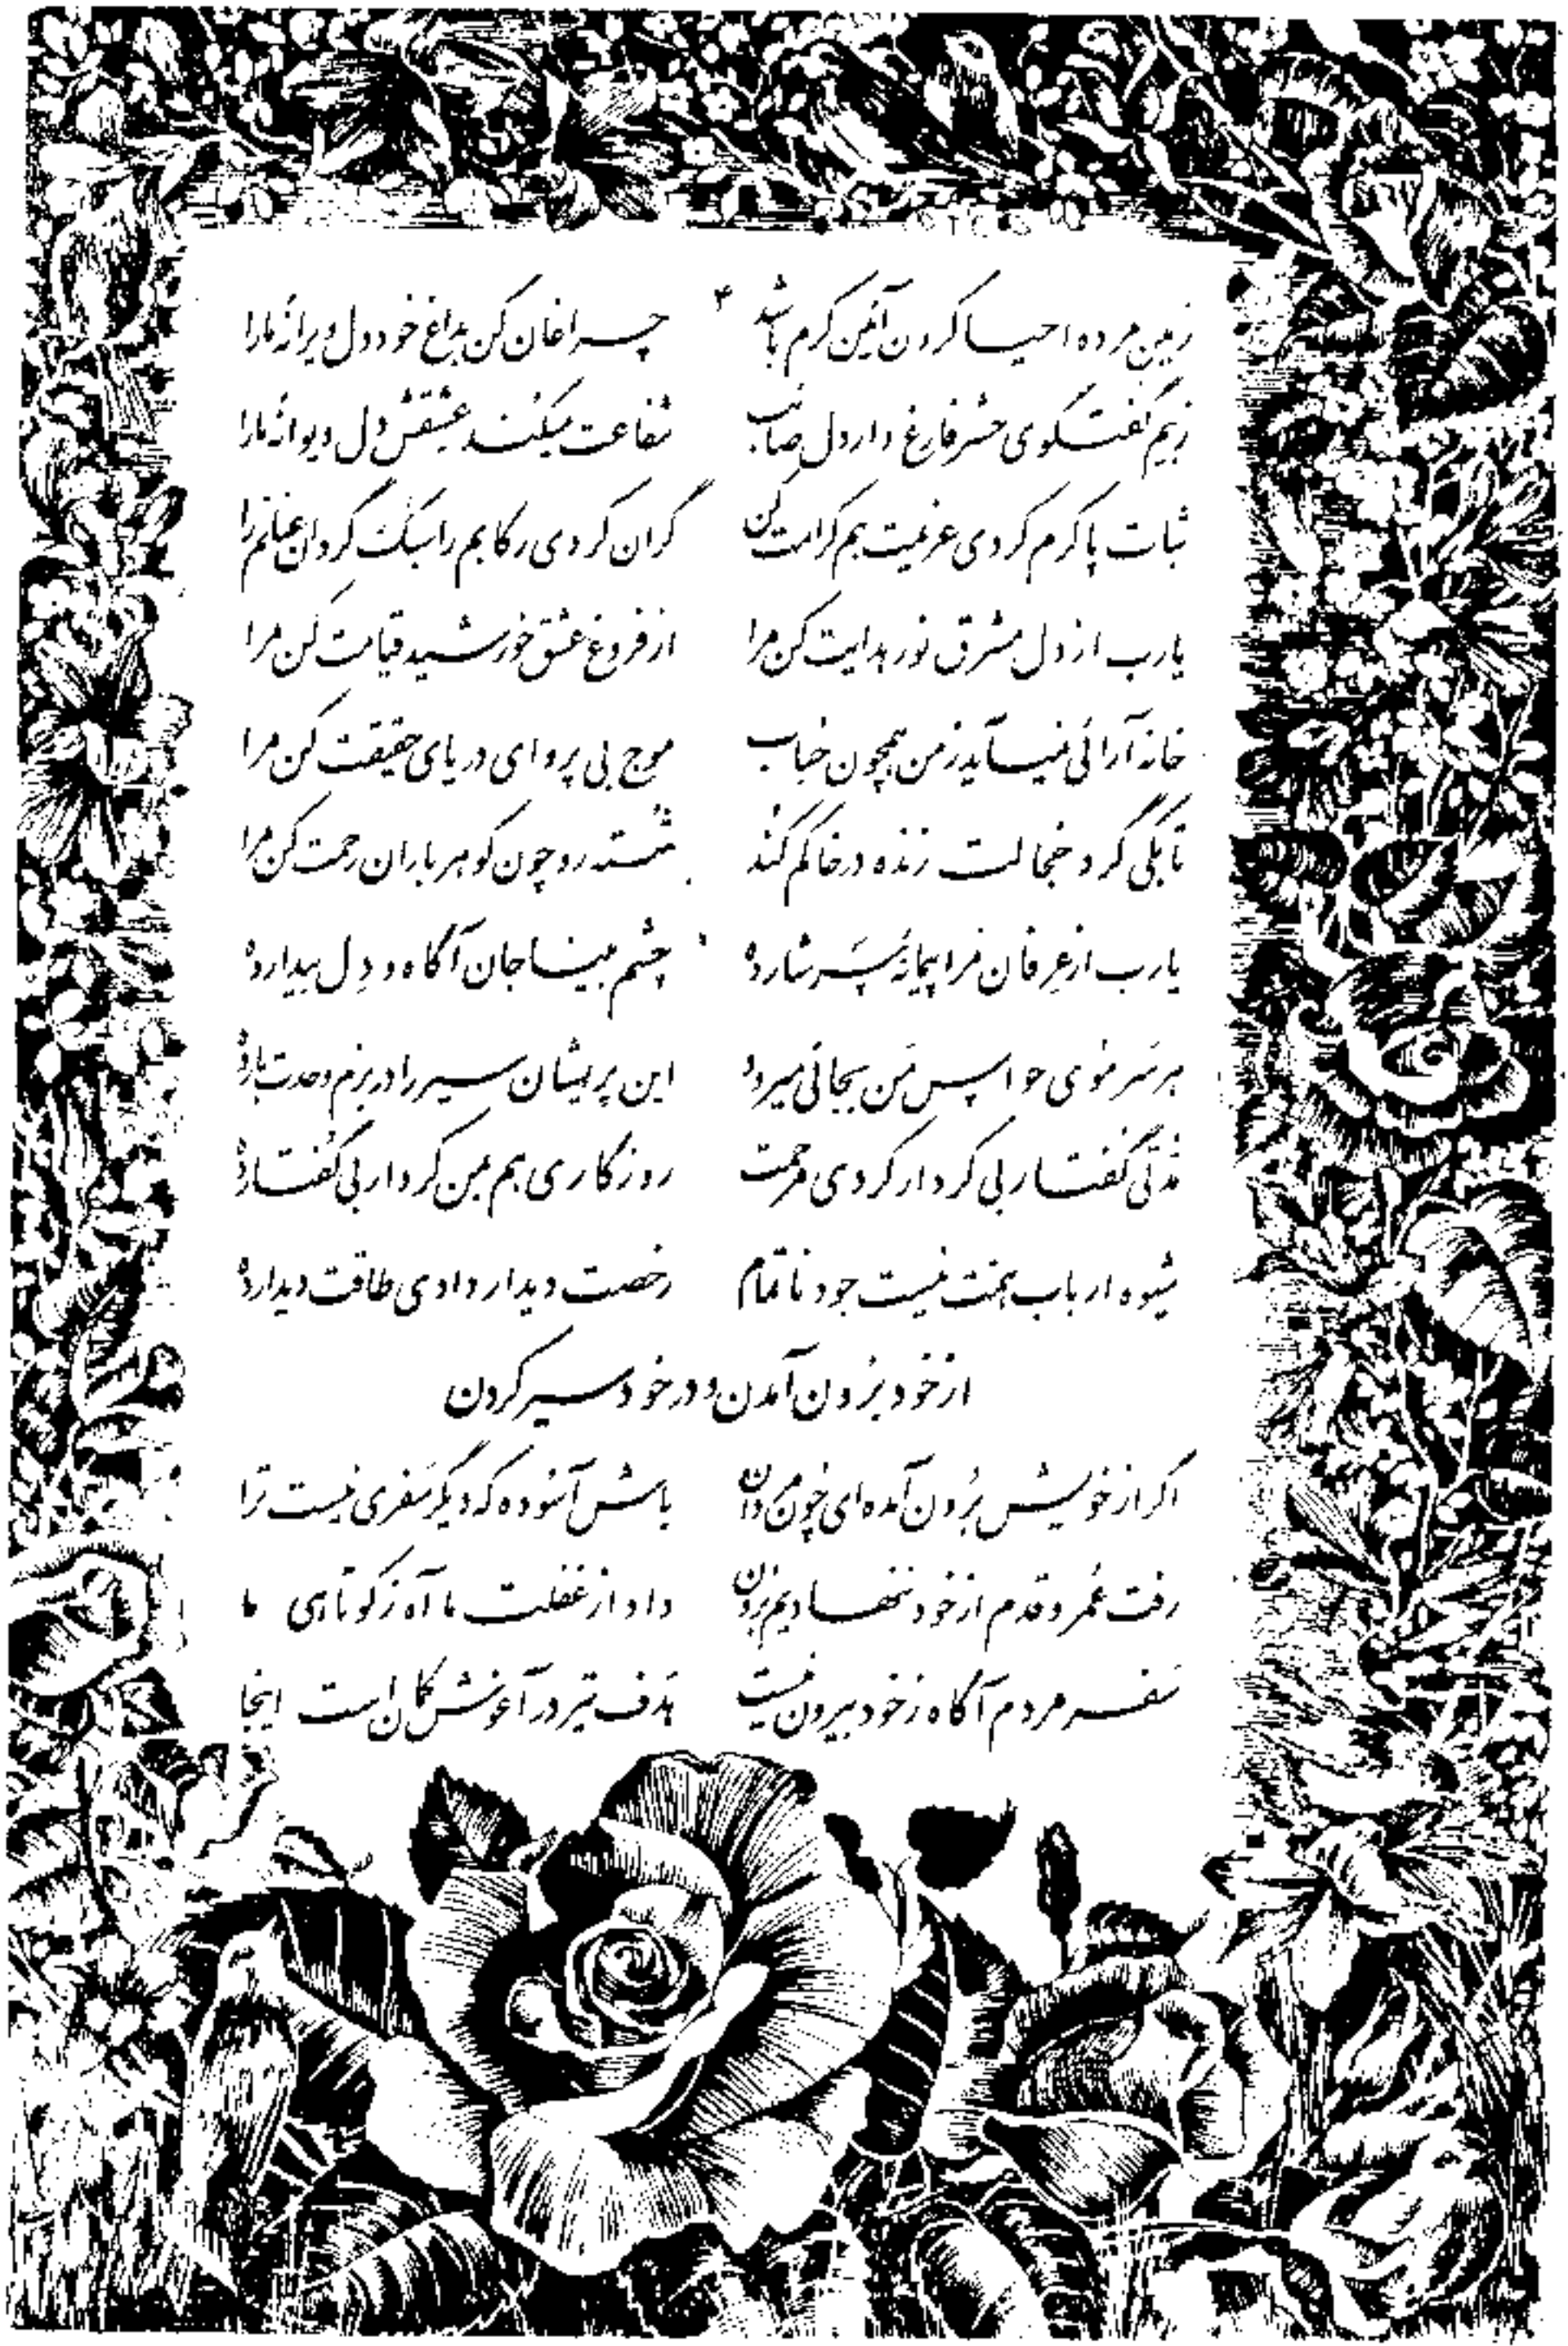 زمین مرده احیا کردن آئین کرم باشد ۴ چراغان کن بداغ خود دل ویرانهٔ ما را
ز بیم گفتگوی حشر فارغ دار دل صائب شفاعت میکند عشقش دل دیوانهٔ ما را
ثبات پا کرم کردی عزیمت هم کرامت کن گران کردی رکابم را سبک گردان عنانم را
یارب از دل مشرق نور هدایت کن مرا از فروغ عشق خورشید قیامت کن مرا
خانه آرائی نمیآید ز من همچون حباب موج بی پروای دریای حقیقت کن مرا
تا بکی گرد خجالت زنده در خاکم کند شسته رو چون گوهر باران رحمت کن مرا
یارب از عرفان مرا پیمانهٔ سرشار ده چشم بینا جان آگاه و دل بیدار ده
هر سر موی حواس من بجائی میرود این پریشان سیر را در بزم وحدت بار ده
مدتی گفتار بی کردار کردی مرحمت روزگاری هم بمن کردار بی گفتار ده
شیوه ارباب همت نیست جود ناتمام رخصت دیدار دادی طاقت دیدار ده
از خود برون آمدن و در خود سیر کردن
اگر از خویش برون آمده‌ای چون مردان باش آسوده که دیگر سفری نیست ترا
رفت عمر و قدم از خود ننهادیم برون داد از غفلت ما آه ز کوتاهی ما
سفر مردم آگاه ز خود بیرون نیست هدف تیر در آغوش کمان است اینجا